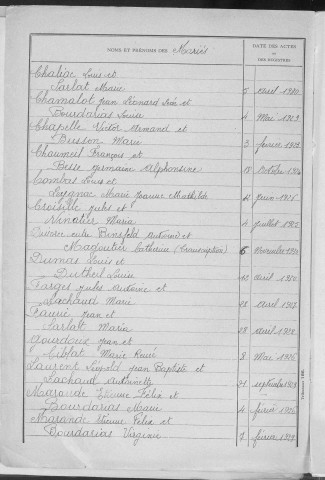 NOMS ET PRÉNOMS DES Mariés
DATE DES ACTES
DES REGISTRES
Chaliac Louis et
Sarlat Marie 5 avril 1910
Chamalot Jean Léonard Léon et
Bourdarias Louise 4 Mai 1909
Chapelle Victor Armand et
Buisson Marie 3 février
Chaumeil François et
Besse Germaine Alphonsine 18 octobre
Combas Louis et
Leygnac Marie Jeanne Mathilde juin
Croiselle Jules et
Ninatier Maria 4 juillet 1912
Divorce entre Binsfeld Antoine et
Magoutier Catherine (transcription) 6 novembre
Dumas Louis et
Dutheil Louise 12 avril 1910
Farges Jules Antoine et
Lachaud Marie 27 avril 1907
Faurie Jean et
Sarlat Maria 28 avril
Gourdoux Jean et
Marie René 8 Mai
Laurent Léopold Jean Baptiste et
Lachaud Antoinette 21 septembre 1909
Marande Etienne Félix et
Bourdarias Marie 4 février
Marande Etienne Félix et
Bourdarias Virginie 7 février